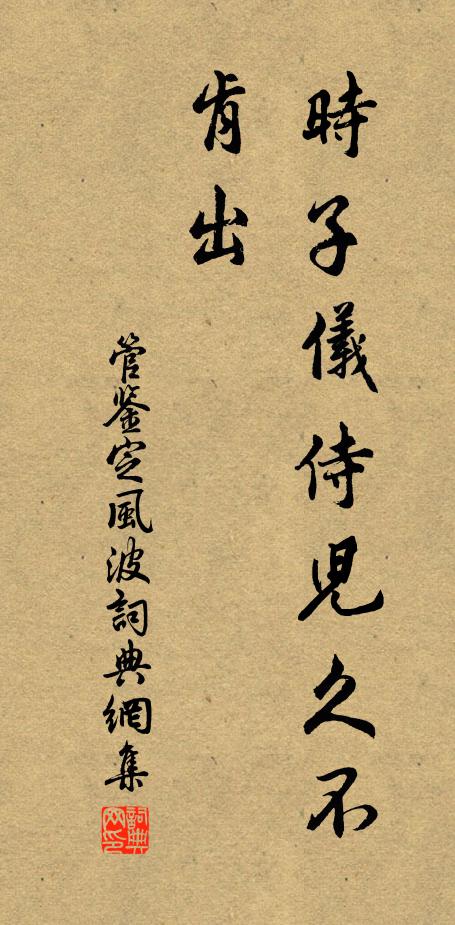 時子儀侍児久不
肯出
管鉴定風波詞典網集
詞典网印